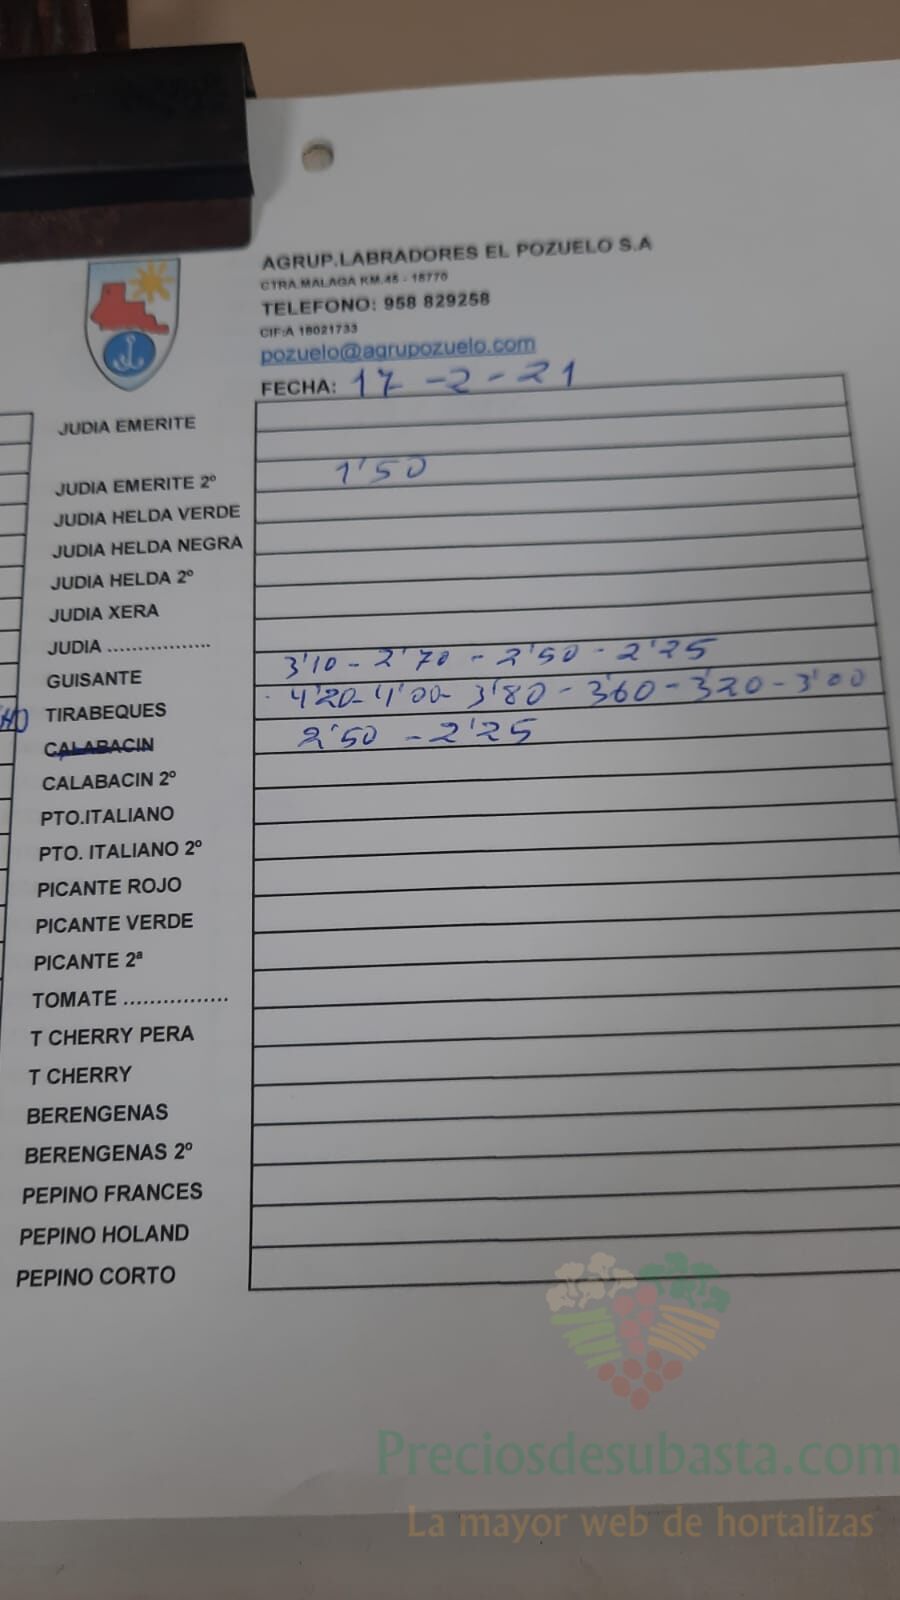 AGRUP.LABRADORES EL POZUELO S.A
CTRA.MALAGA KM.45 - 18770
TELEFONO: 958 829258
CIF:A 18021733
pozuelo@agrupozuelo.com
FECHA: 17-2-21
JUDIA EMERITE
JUDIA EMERITE 2º 1'50
JUDIA HELDA VERDE
JUDIA HELDA NEGRA
JUDIA HELDA 2º
JUDIA XERA
JUDIA .................
GUISANTE 3'10 - 2'70 - 2'50 - 2'25
TIRABEQUES 4'20 - 4'00 - 3'80 - 3'60 - 3'20 - 3'00
CALABACIN 2'50 - 2'25
CALABACIN 2º
PTO.ITALIANO
PTO. ITALIANO 2º
PICANTE ROJO
PICANTE VERDE
PICANTE 2ª
TOMATE ................
T CHERRY PERA
T CHERRY
BERENGENAS
BERENGENAS 2º
PEPINO FRANCES
PEPINO HOLAND
PEPINO CORTO
Preciosdesubasta.com
La mayor web de hortalizas